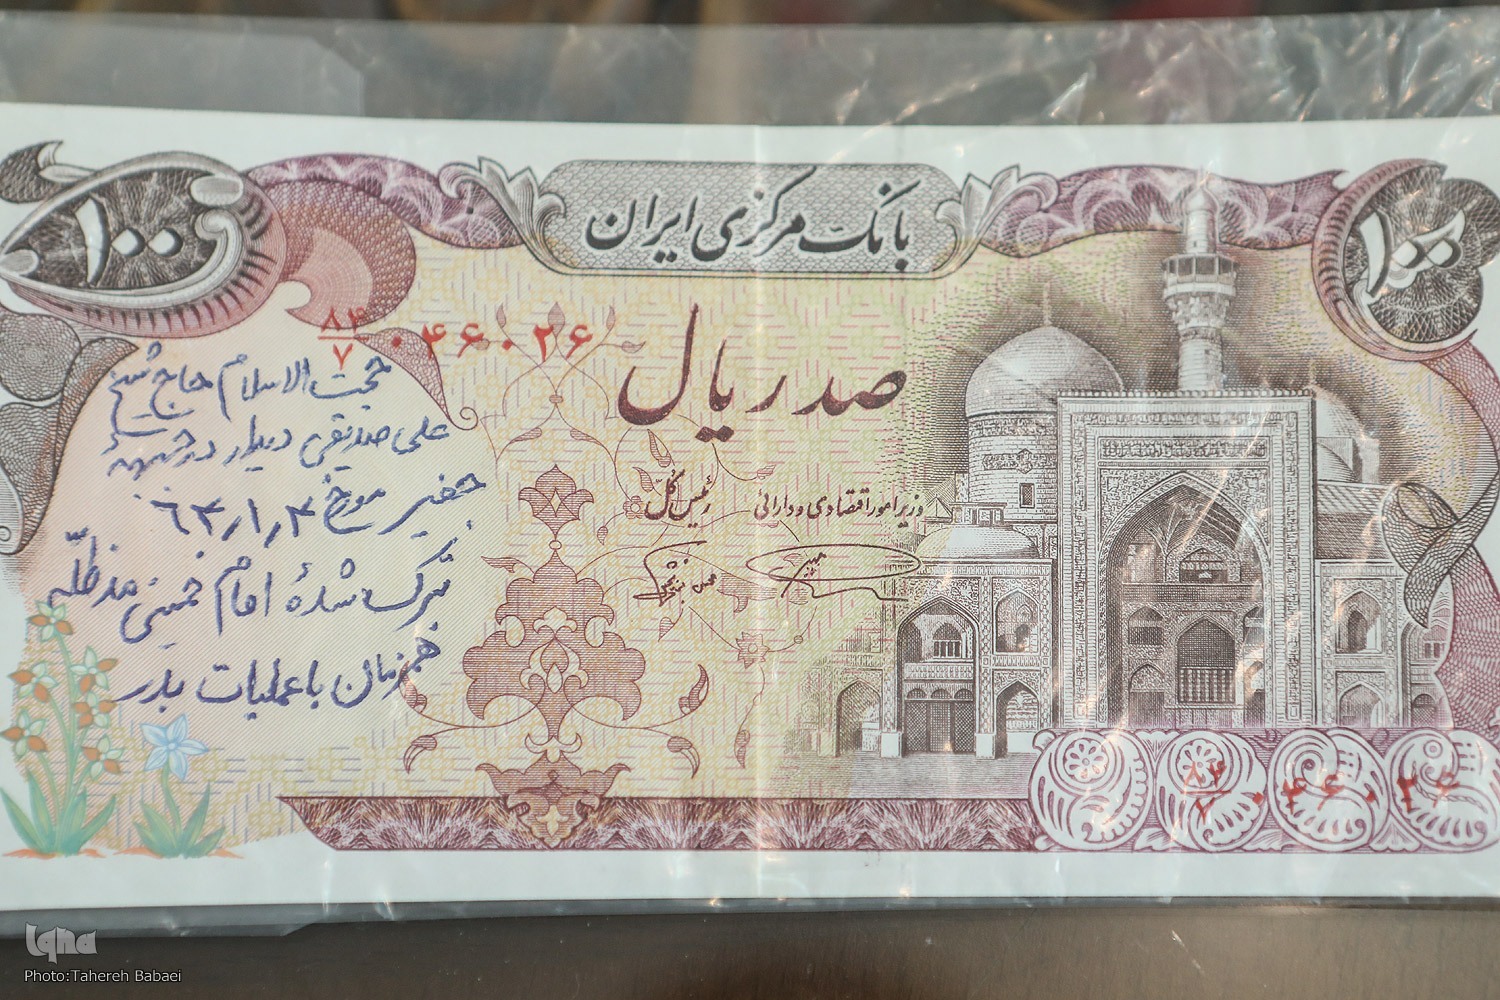 بانک مرکزی ایران
۱۰۰
۱۰۰
۸۴/۷ ۰۴۶۰۲۶
صد ریال
حجت الاسلام حاج شیخ
علی صدیقی دیدار در جبههٔ
جفیر مورخ ۶۴٫۱٫۴
تبرک شدهٔ امام خمینی مدظلّه
همزمان با عملیات بدر
وزیر امور اقتصادی و دارائی
رئیس کل
۸۴/۷ ۰۴۶۰۲۶
iqna
Photo:Tahereh Babaei